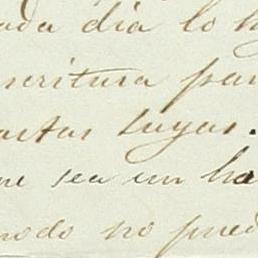 ada dia lo h
scritura par
artas suyas.
ue sea un ha
modo no pued